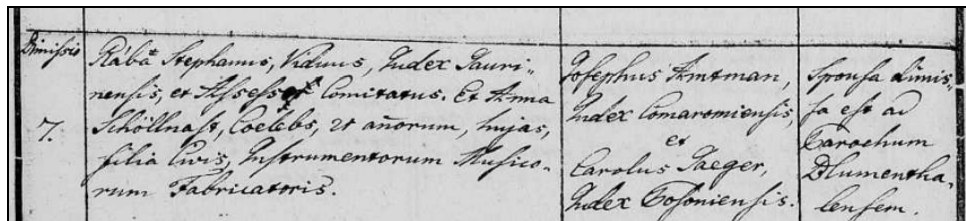 Dimissio
7.
Rába Stephanus, Viduus, Judex Jauri-
nensis, et Assessor Comitatus. Et Anna
Schöllnast, Coelebs, 21 añorum, hujas,
filia Civis, Instrumentorum Musico-
rum Fabricatoris.
Josephus Amtman,
Judex Comaromiensis,
et
Carolus Jaeger,
Judex Posoniensis.
Sponsa dimis-
sa est ad
Parochum
Blumentha-
lensem.